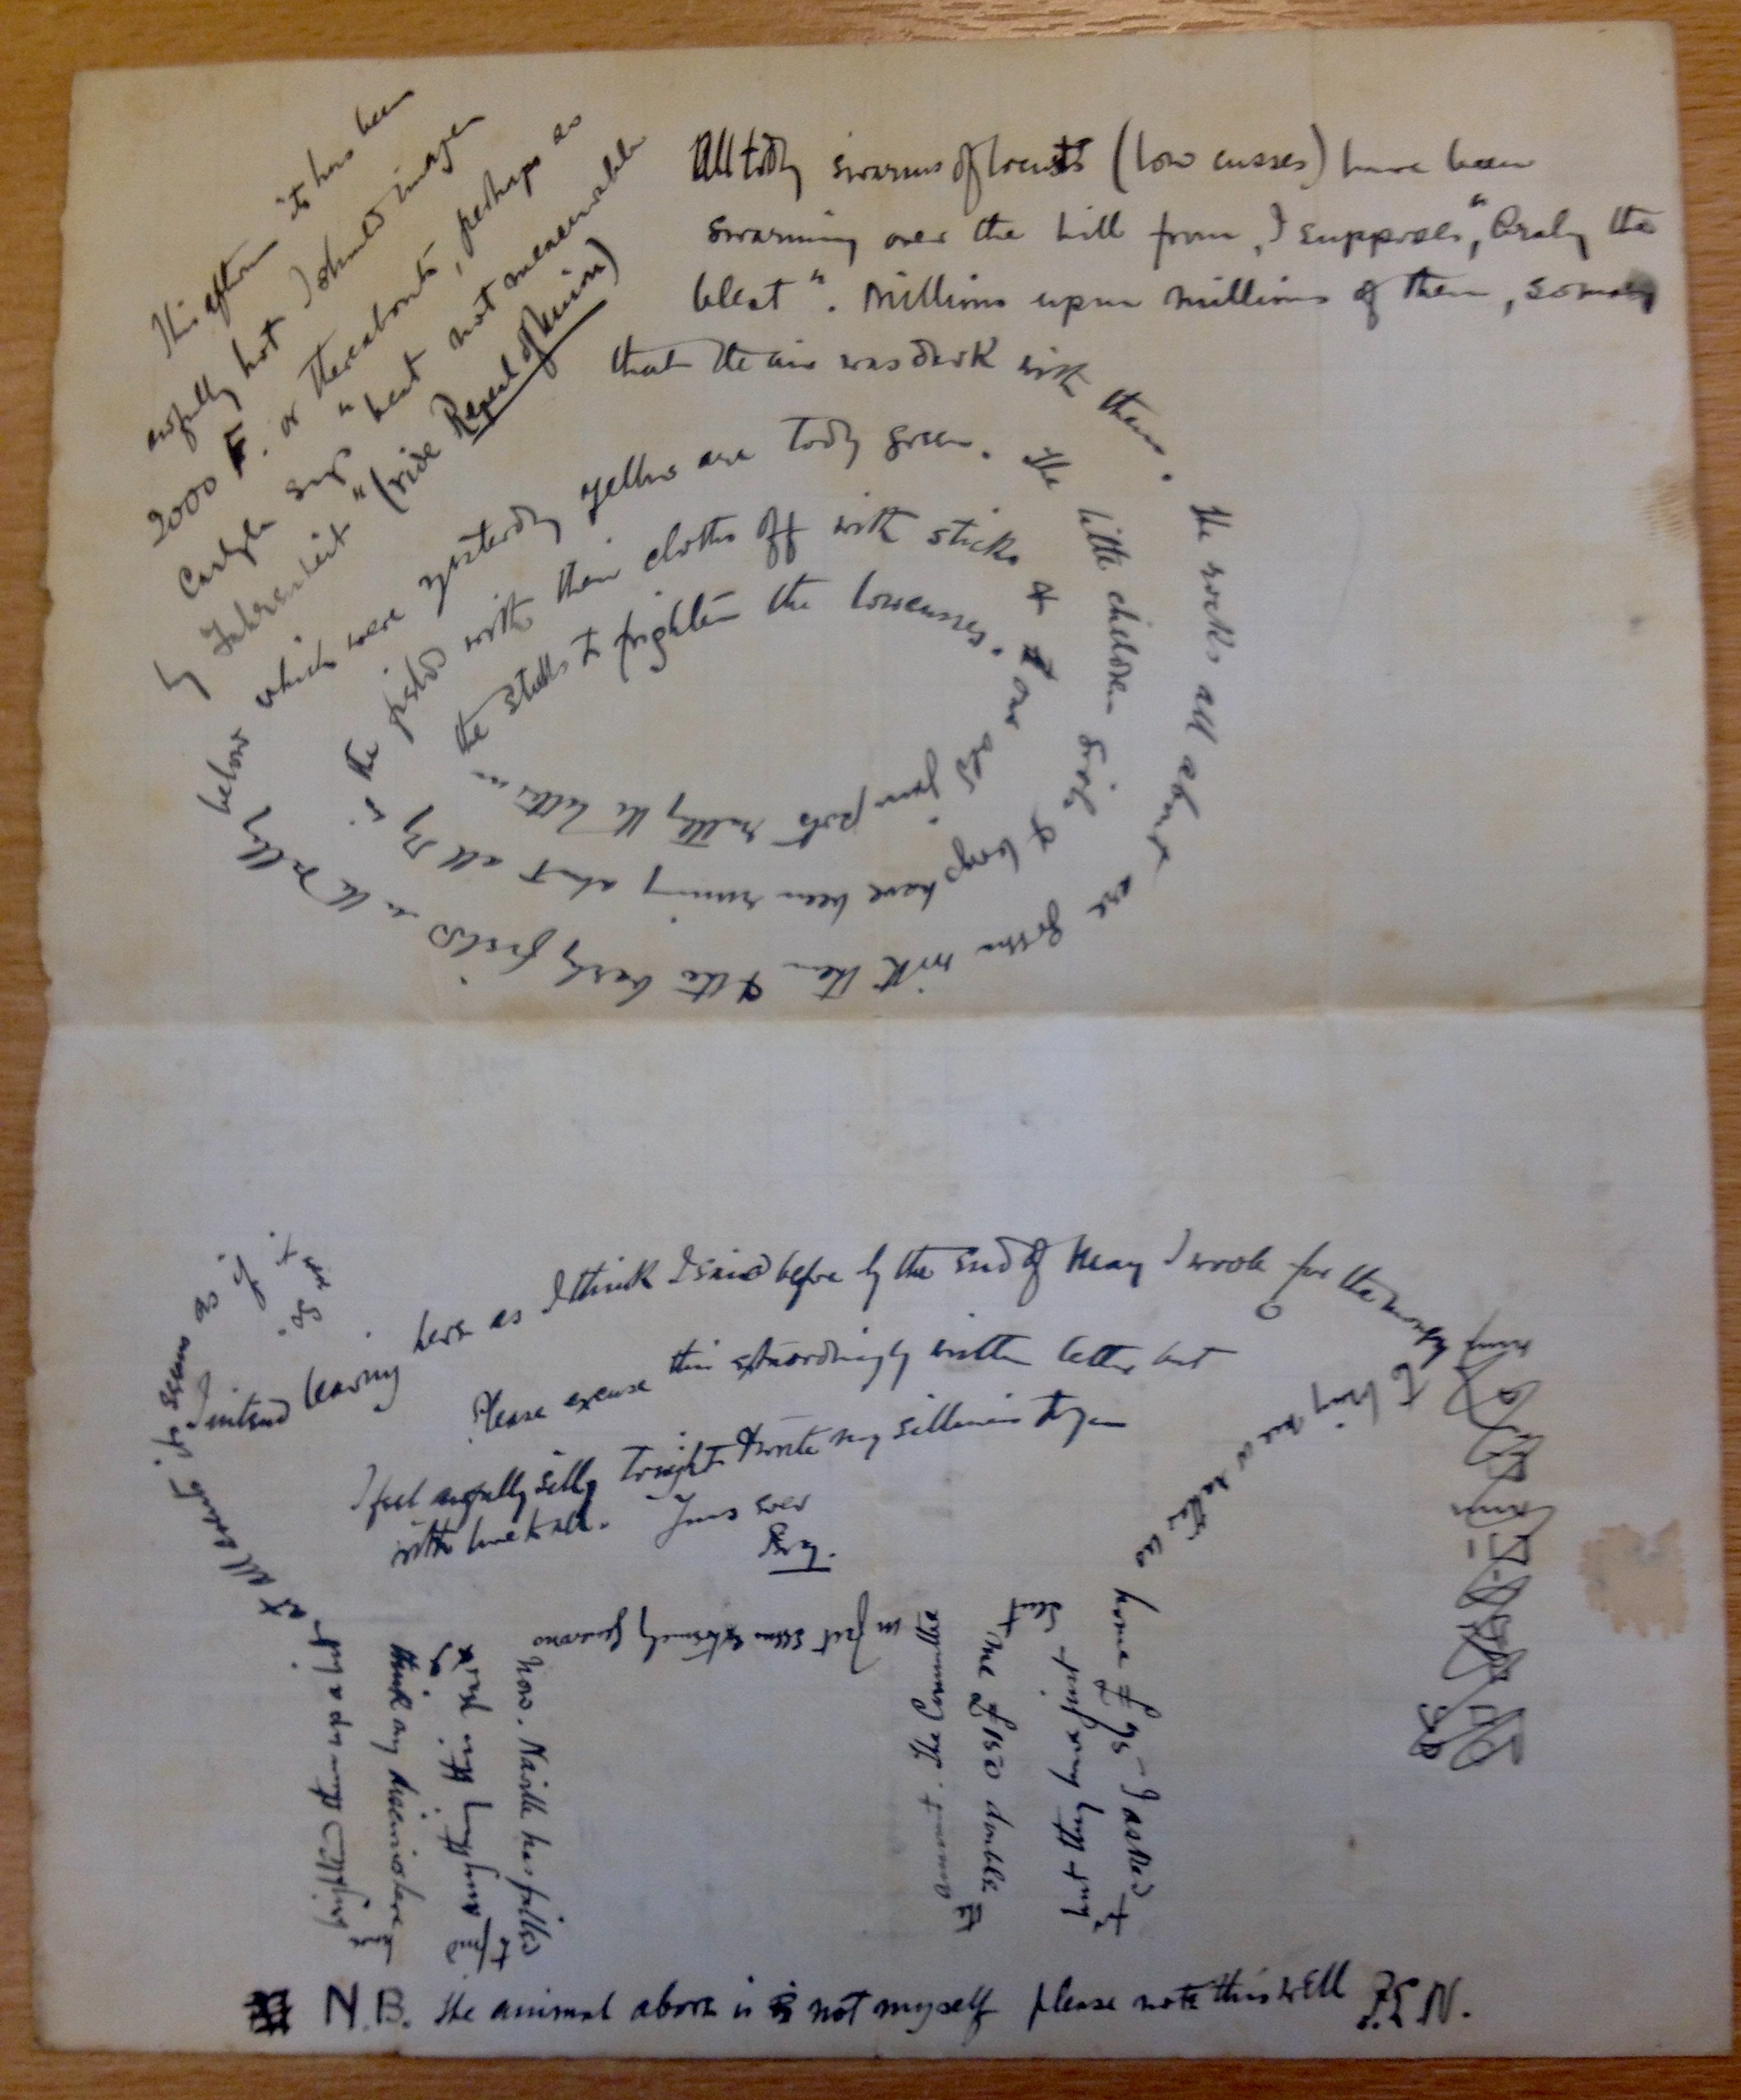 This afternoon it has been
awfully hot I should imagen
2000 F. or thereabouts, perhaps as
Carlyle says "heat not measurable
by Fahrenheit" (vide Repeal of Union)
All today swarms of locusts (low cusses) have been
swarming over the hill from, I supposes, "Araby the
blest". Millions upon millions of them, so many
that the air was dark with them.
The rocks all about are
green with them & the barley fields in the valley
below which were yesterday yellow are today green. The
little children girls & boys have been running about all day in the
fields with their cloths off with sticks &
our old jam pots rattling the latter on
the sticks to frighten the lowcusses.
I intend leaving here as I think I said before by the end of May I wrote for the money
to bring me & Naville
home £75 – I asked to
but they have just sent
me £150 double the
amount. The Committee
in fact seems extremely generous
now. Naville has failed
to find anything this year &
I think my discoveries have
frightened them up a bit
at all events it seems as if
it is so
Please excuse this extraordinarily written letter but
I feel awfully silly tonight & write my silliness to you
with love to all. Yours ever
Percy.
N.B. The animal above is not myself please note this well P.E.N.